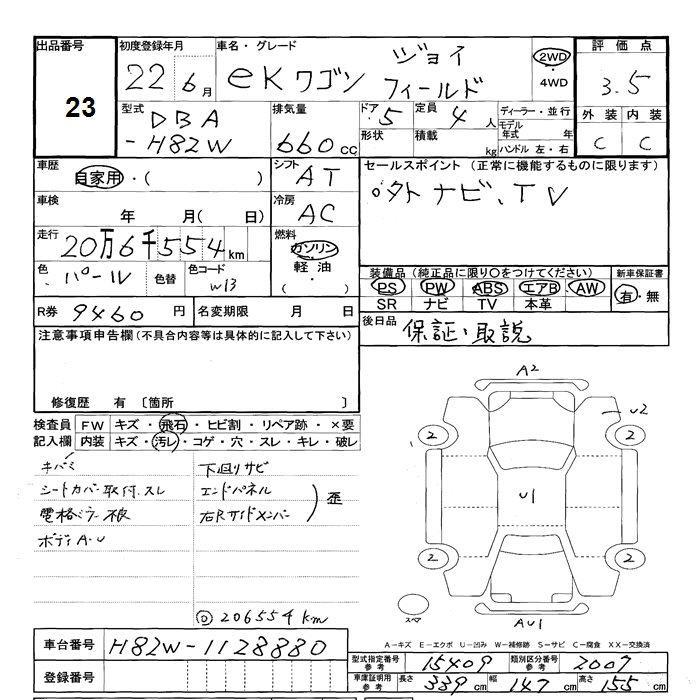 出品番号 23
初度登録年月 22 6月
車名・グレード eKワゴン ジョイフィールド
2WD ・4WD
評価点 3.5
外装 C 内装 C
型式 DBA -H82W
排気量 660cc
ドア 5 定員 4人
形状 積載 kg
ディーラー・並行
モデル年式 年
ハンドル 左・右
車歴 自家用・( )
シフト AT
車検 年 月( 日)
冷房 AC
走行 20万6千554km
燃料 ガソリン 軽油 ・( )
色 パール 色替 色コード W13
セールスポイント (正常に機能するものに限ります)
外 ナビ、TV
装備品(純正品に限り○をつけてください) 新車保証書
PS PW ABS エアB AW 有・無
SR ナビ TV 本革
R券 9460円 名変期限 月 日
後日品 保証・取説
注意事項申告欄(不具合内容等は具体的に記入して下さい)
修復歴 有 〔箇所 〕
検査員 FW キズ・飛石・ヒビ割・リペア跡・×要
記入欄 内装 キズ・汚レ・コゲ・穴・スレ・キレ・破レ
キバミ 下廻りサビ
シートカバー取付.スレ エンドパネル
電格ミラー 右Rサイドメンバー 歪
ボディA・U
Ⓓ 206554km
A2
U2
2 2
U1
2 2
スペア AU1
車台番号 H82W-1128880
登録番号
A−キズ E−エクボ U−凹み W−補修跡 S−サビ C−腐食 XX−交換済
型式指定番号 参考 15409 類別区分番号 参考 2007
車庫証明用 参考 長さ 339cm 幅 147cm 高さ 155cm